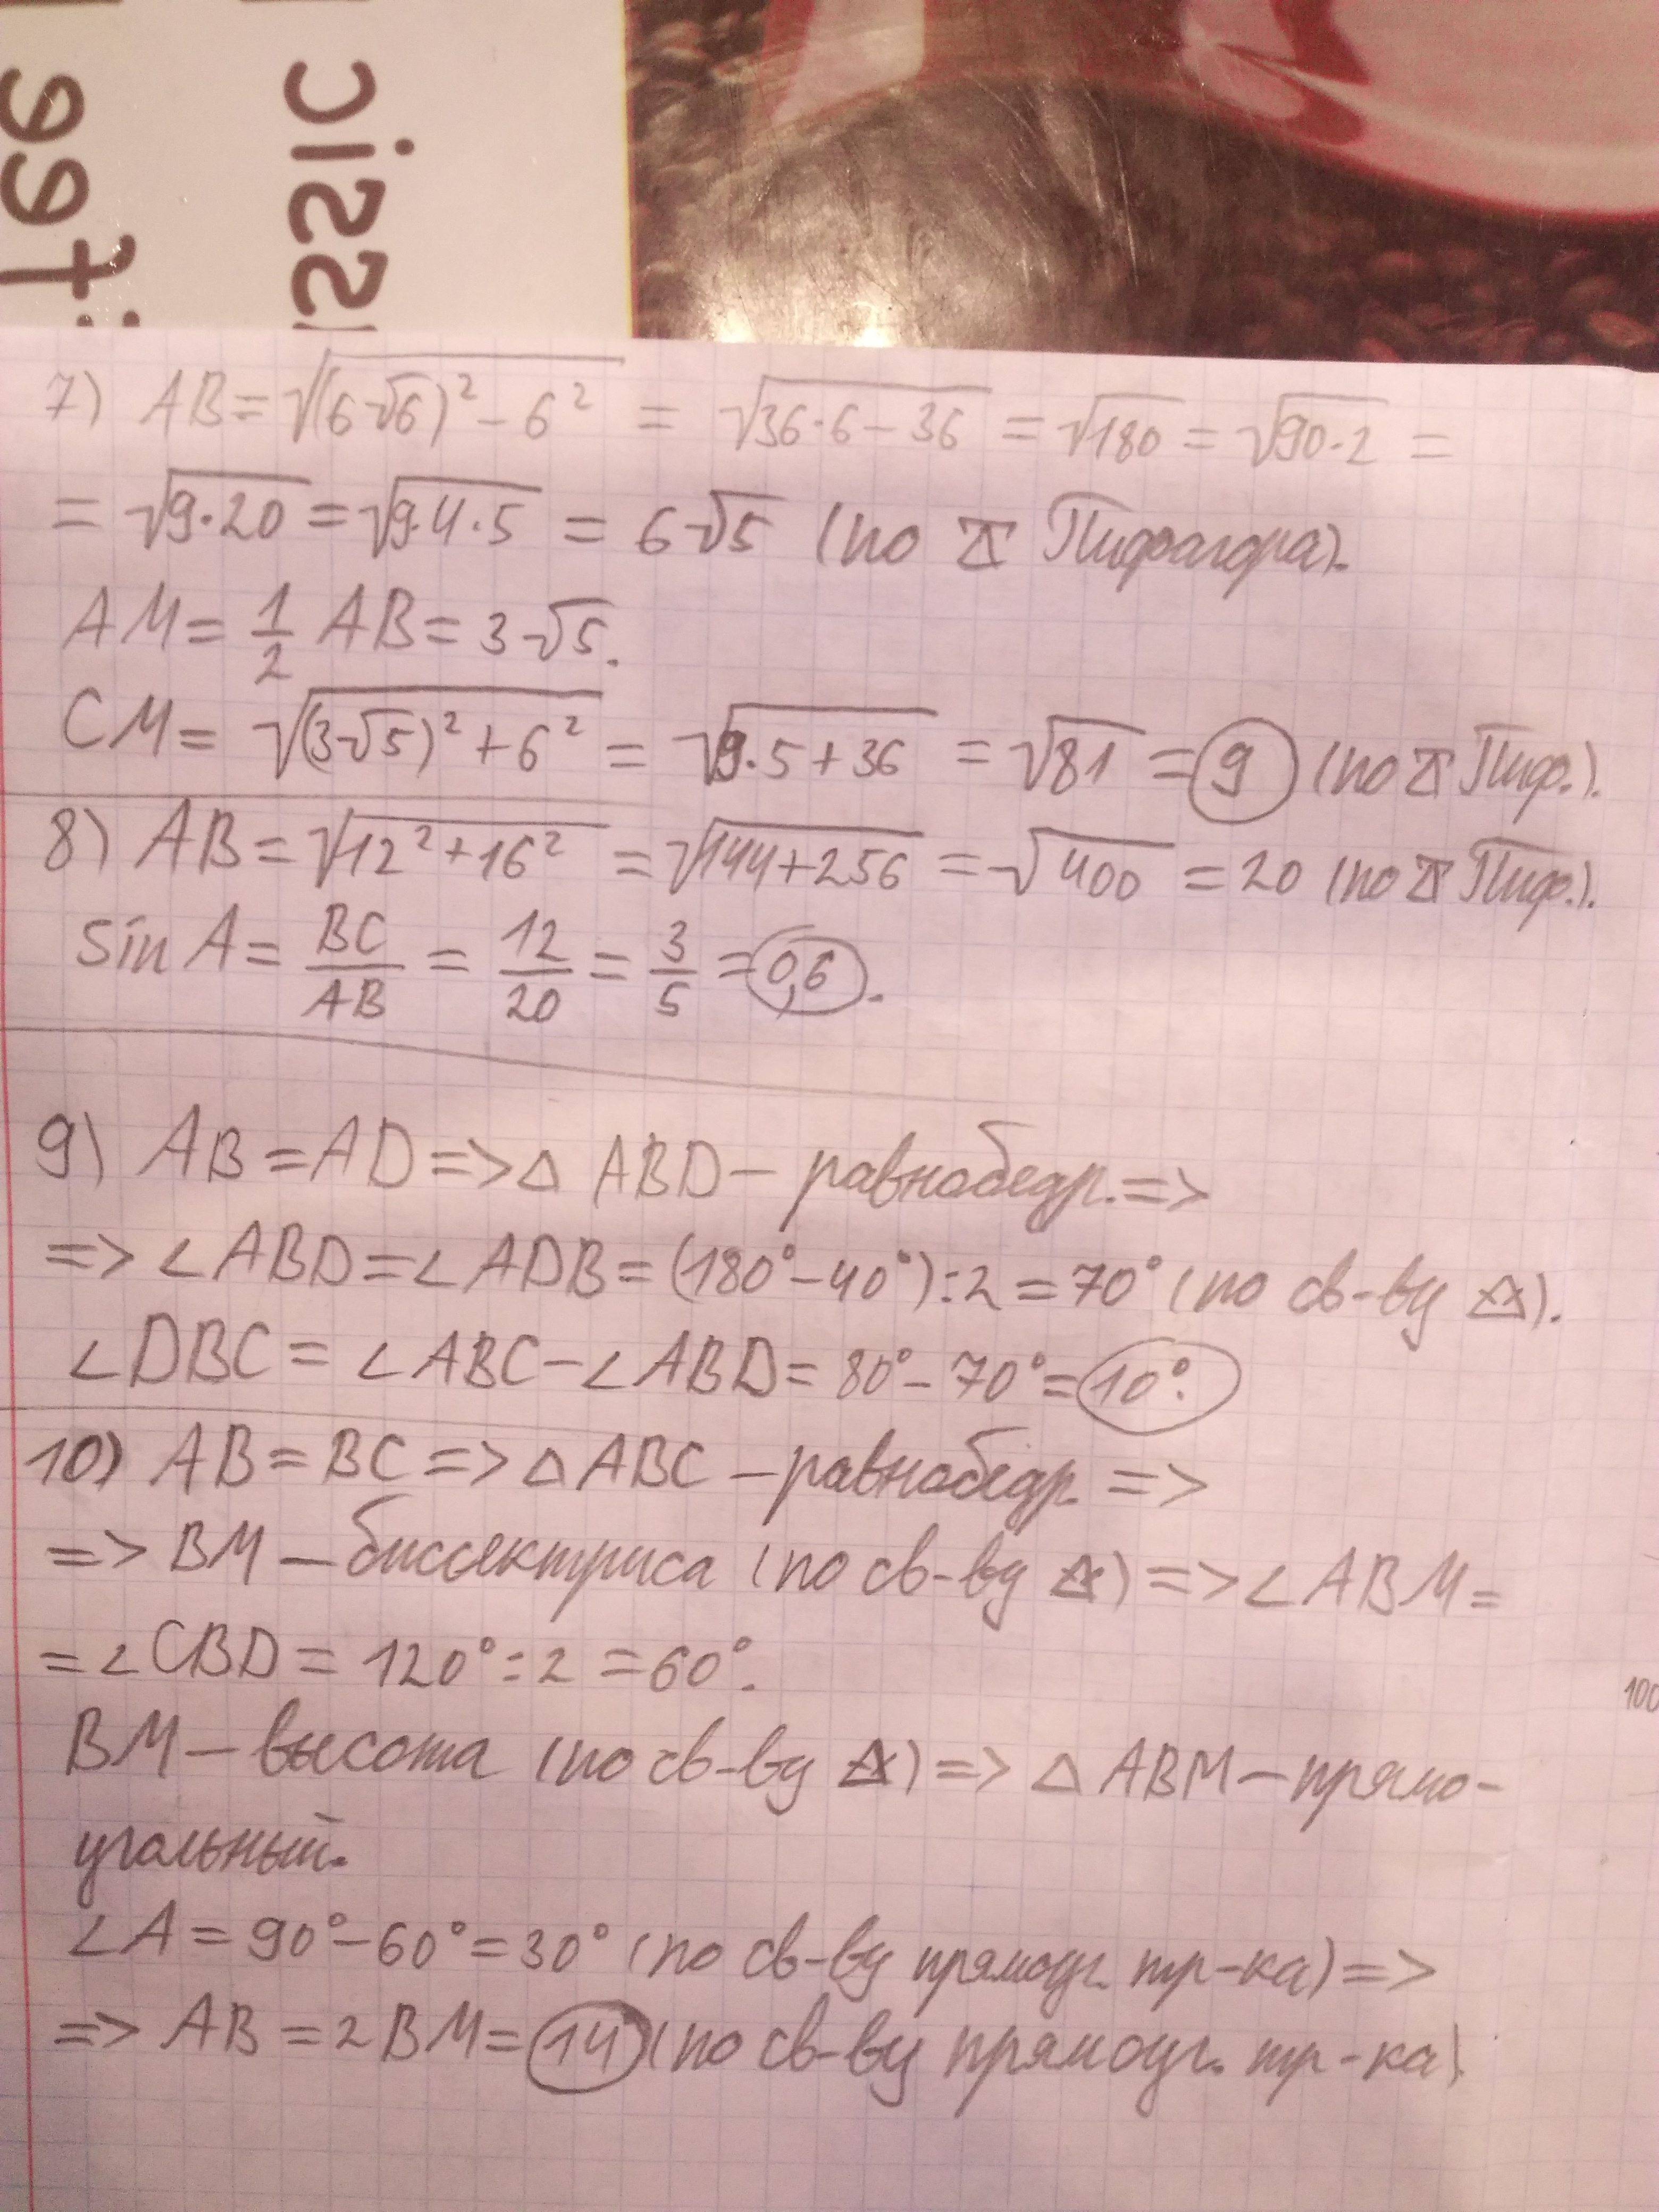 ssic
fee
7) AB = √((6√6)² - 6²) = √(36·6 - 36) = √180 = √(90·2) =
= √(9·20) = √(9·4·5) = 6√5 (по Т Пифагора).
AM = 1/2 AB = 3√5.
CM = √((3√5)² + 6²) = √(9·5 + 36) = √81 = 9 (по Т Пиф.).
8) AB = √(12² + 16²) = √(144 + 256) = √400 = 20 (по Т Пиф.).
sin A = BC/AB = 12/20 = 3/5 = 0,6.
9) AB = AD => △ ABD – равнобедр. =>
=> ∠ABD = ∠ADB = (180° - 40°) : 2 = 70° (по св-ву △).
∠DBC = ∠ABC - ∠ABD = 80° - 70° = 10°.
10) AB = BC => △ ABC – равнобедр. =>
=> BM – биссектриса (по св-ву △) => ∠ABM =
= ∠CBD = 120° : 2 = 60°.
BM – высота (по св-ву △) => △ ABM – прямо-
угольный.
∠A = 90° - 60° = 30° (по св-ву прямоуг. тр-ка) =>
=> AB = 2BM = 14 (по св-ву прямоуг. тр-ка).
100